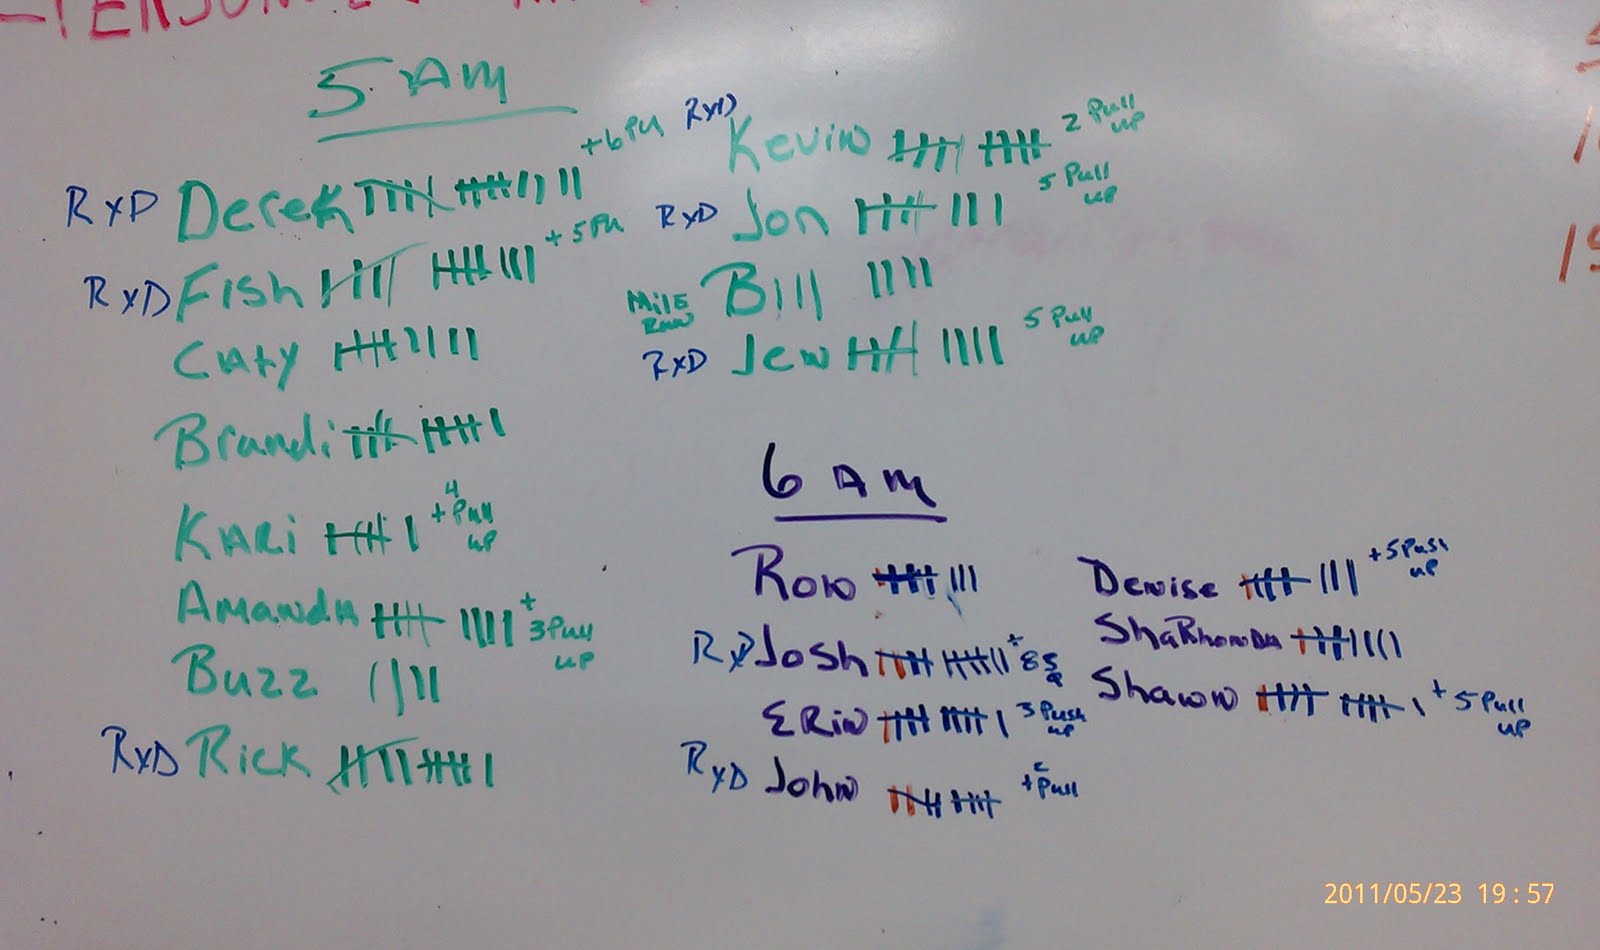 5 AM
RxD Derek +6 PU
RxD Fish + 5 PU
Caty
Brandi
KARi 4 + Pull UP
AMANDA + 3 Pull UP
Buzz
RxD Rick
RxD Kevin 2 Pull UP
RxD Jon 5 Pull UP
MilE Row Bill
RxD Jen 5 Pull UP
6 AM
Ron
RxD Josh + 8 SQ
ERiN 3 Push UP
RxD John + 2 Pull
Denise +5 Push UP
ShaRhonda
Shawn + 5 Pull UP
2011/05/23 19:57